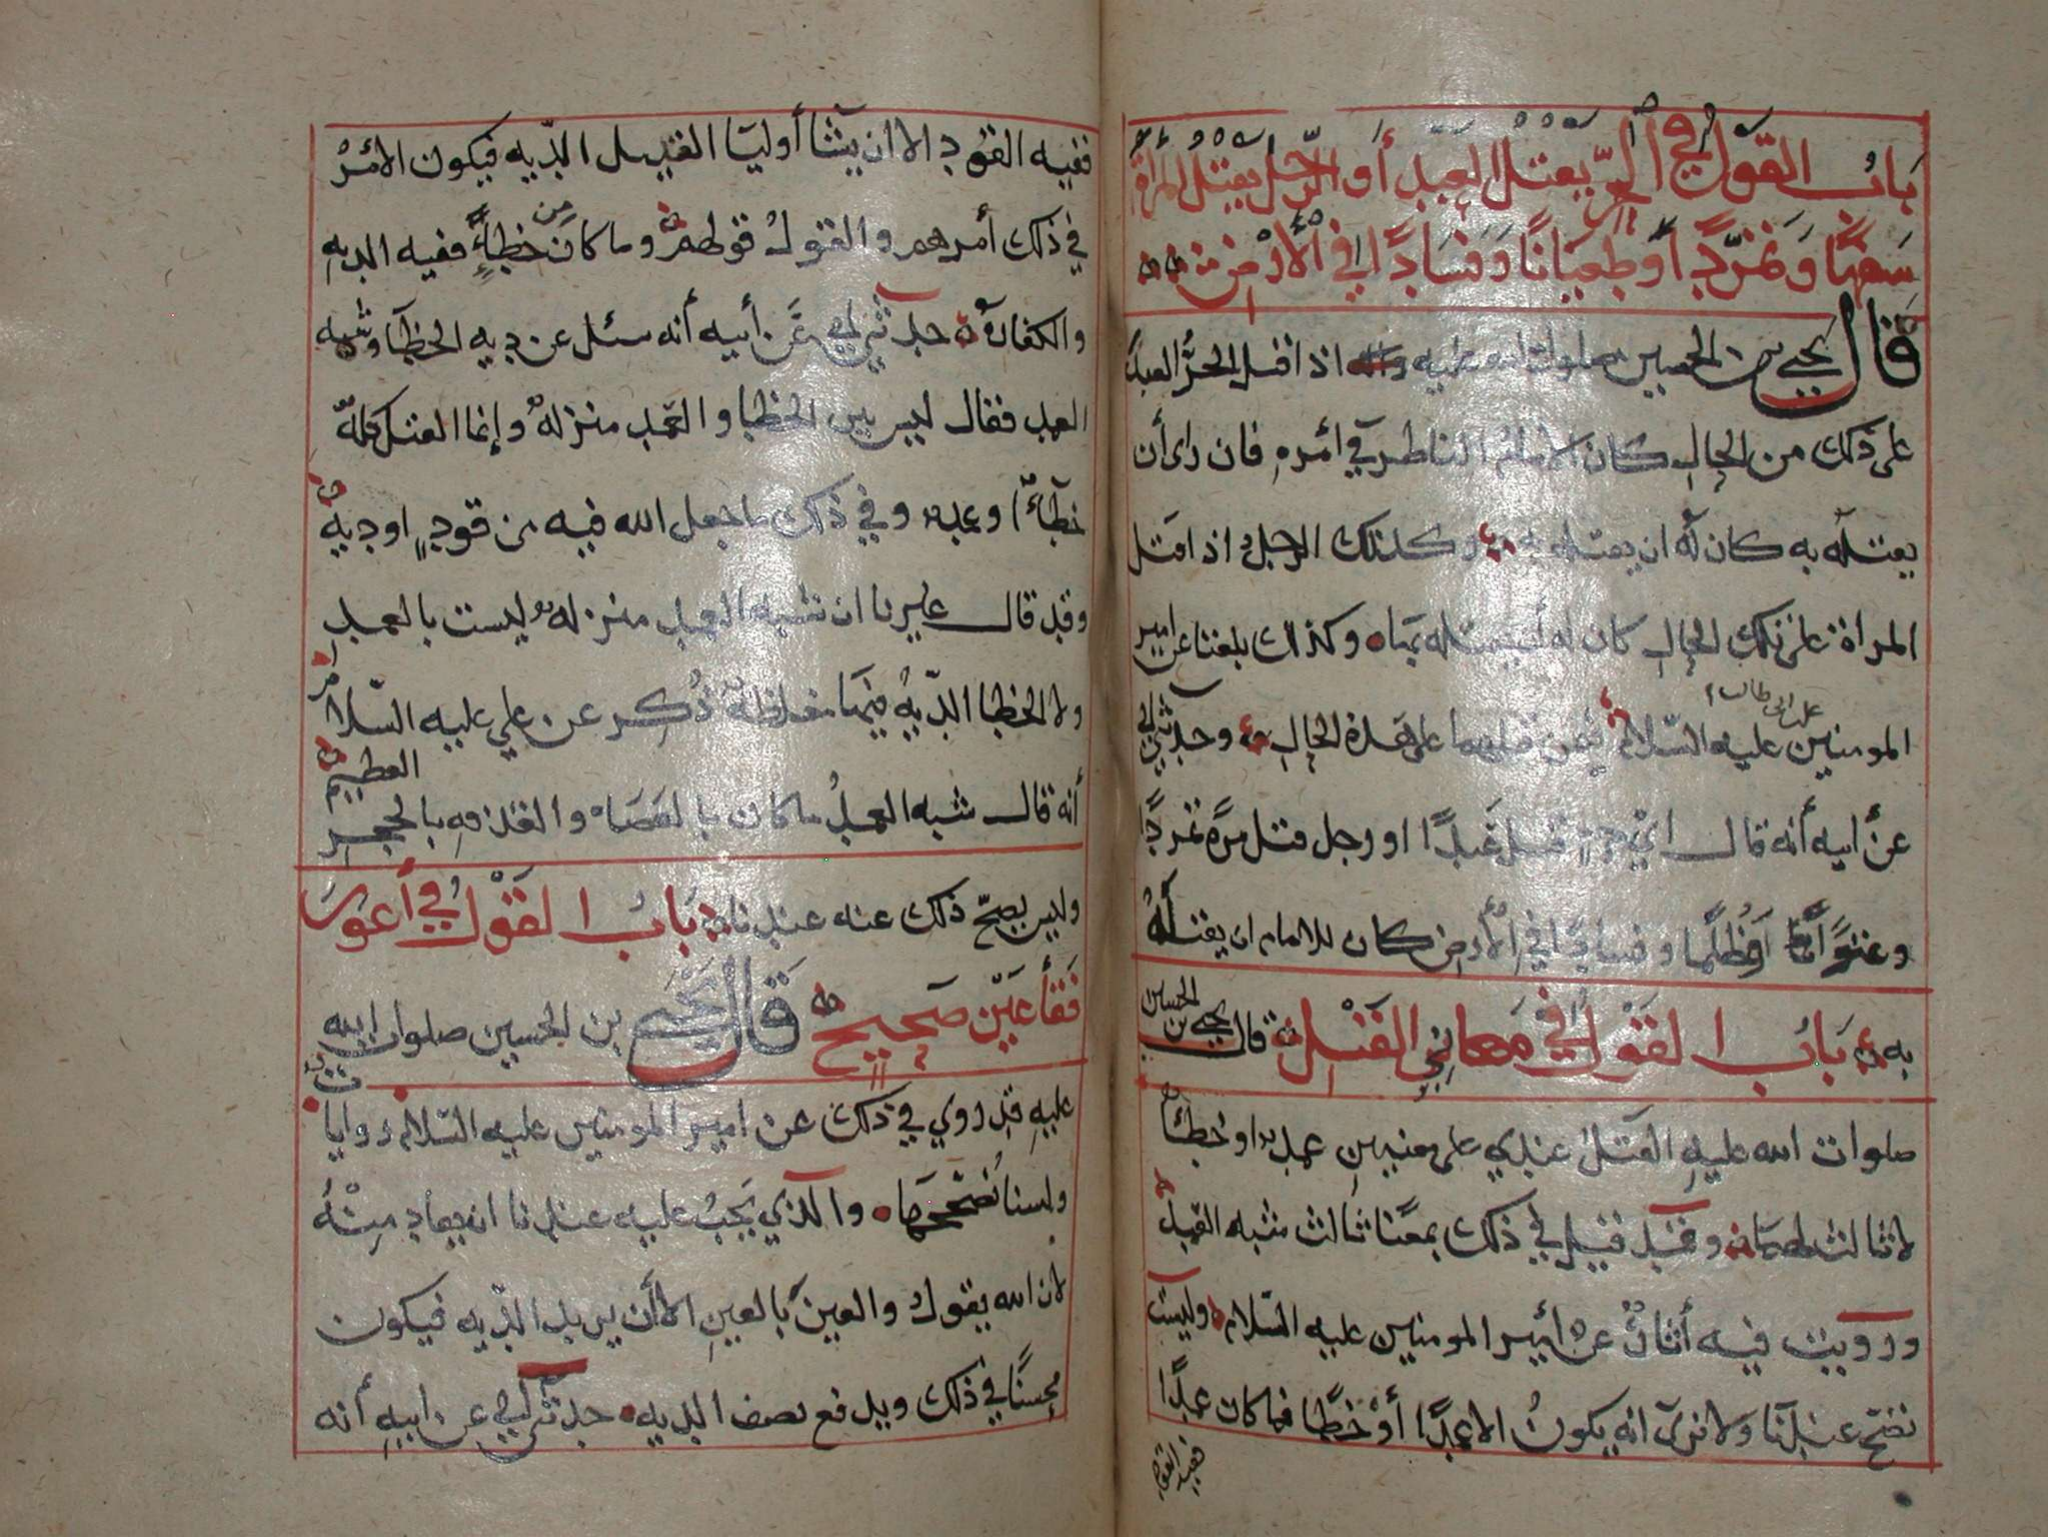 باب القول في الحر يقتل العبد أو الرجل يقتل المرأة
تمردًا أو طغيانًا وفسادًا في الأرض
قال يحيى بن الحسين صلوات الله عليه اذا قتل الحرُّ العبدَ
على ذلك من الحال كان الإمام الناظر في أمره فان رأى أن
يقتله به كان له ان يقتله به وكذلك الرجل اذا قتل
المراة على تلك الحال كان له أن يقتله بها وكذلك بلغنا عن امير
المومنين علي بن ابي طالب عليه السلام فيمن قتلهما على هذه الحال وحدثني ابي
عن ابيه أنه قال اي حر قتل عبدًا او رجل قتل مرة تمردًا
وعتوًا أو ظلمًا وفسادًا في الأرض كان للامام ان يقتله
به باب القول في معاني القتل قال يحيى بن الحسين
صلوات الله عليه القتل عندي على معنيين عمد او خطأ
لا ثالث لهما وقد قيل في ذلك بمعنا ثالث شبه العمد
ورويت فيه أثار عن أمير المومنين عليه السلام وليست
تصح عندنا ولا نرى انه يكون الا عمدًا أو خطًا فما كان عمدًا
ففيه القود
ففيه القود الا ان يشا أوليا القتيل الدّيه فيكون الأمرُ
في ذلك أمرهم والقول قولهم وما كان من خطاءٍ ففيه الديه
والكفارة حدثني ابي عن أبيه أنه سئل عن ديه الخطا وشبه
العمد فقال ليس بين الخطا والعمد منزلة وإنما القتل كله
خطاءً او عمد وفي ذلك ما جعل الله فيه من قودٍ او ديه
وقد قال غيرنا ان شبه العمد منزله ليست بالعمد
ولا الخطا الدّيه فيها مغلظة ذكر عن علي عليه السلام
أنه قال شبه العمد ما كان بالعصاه والقذفه بالحجر العظيم
وليس يصحّ ذلك عنه عندنا باب القول في أعور
فقأ عين صحيح قال يحيى بن الحسين صلوات الله
عليه قد روي في ذلك عن امير المومنين عليه السلام روايات
ولسنا نصححها والذي يجب عليه عندنا انه يقاد منه
لان الله يقول والعين بالعين الا أن يريد الدّيه فيكون
محسنًا في ذلك ويدفع نصف الديه حدثني ابي عن ابيه أنه